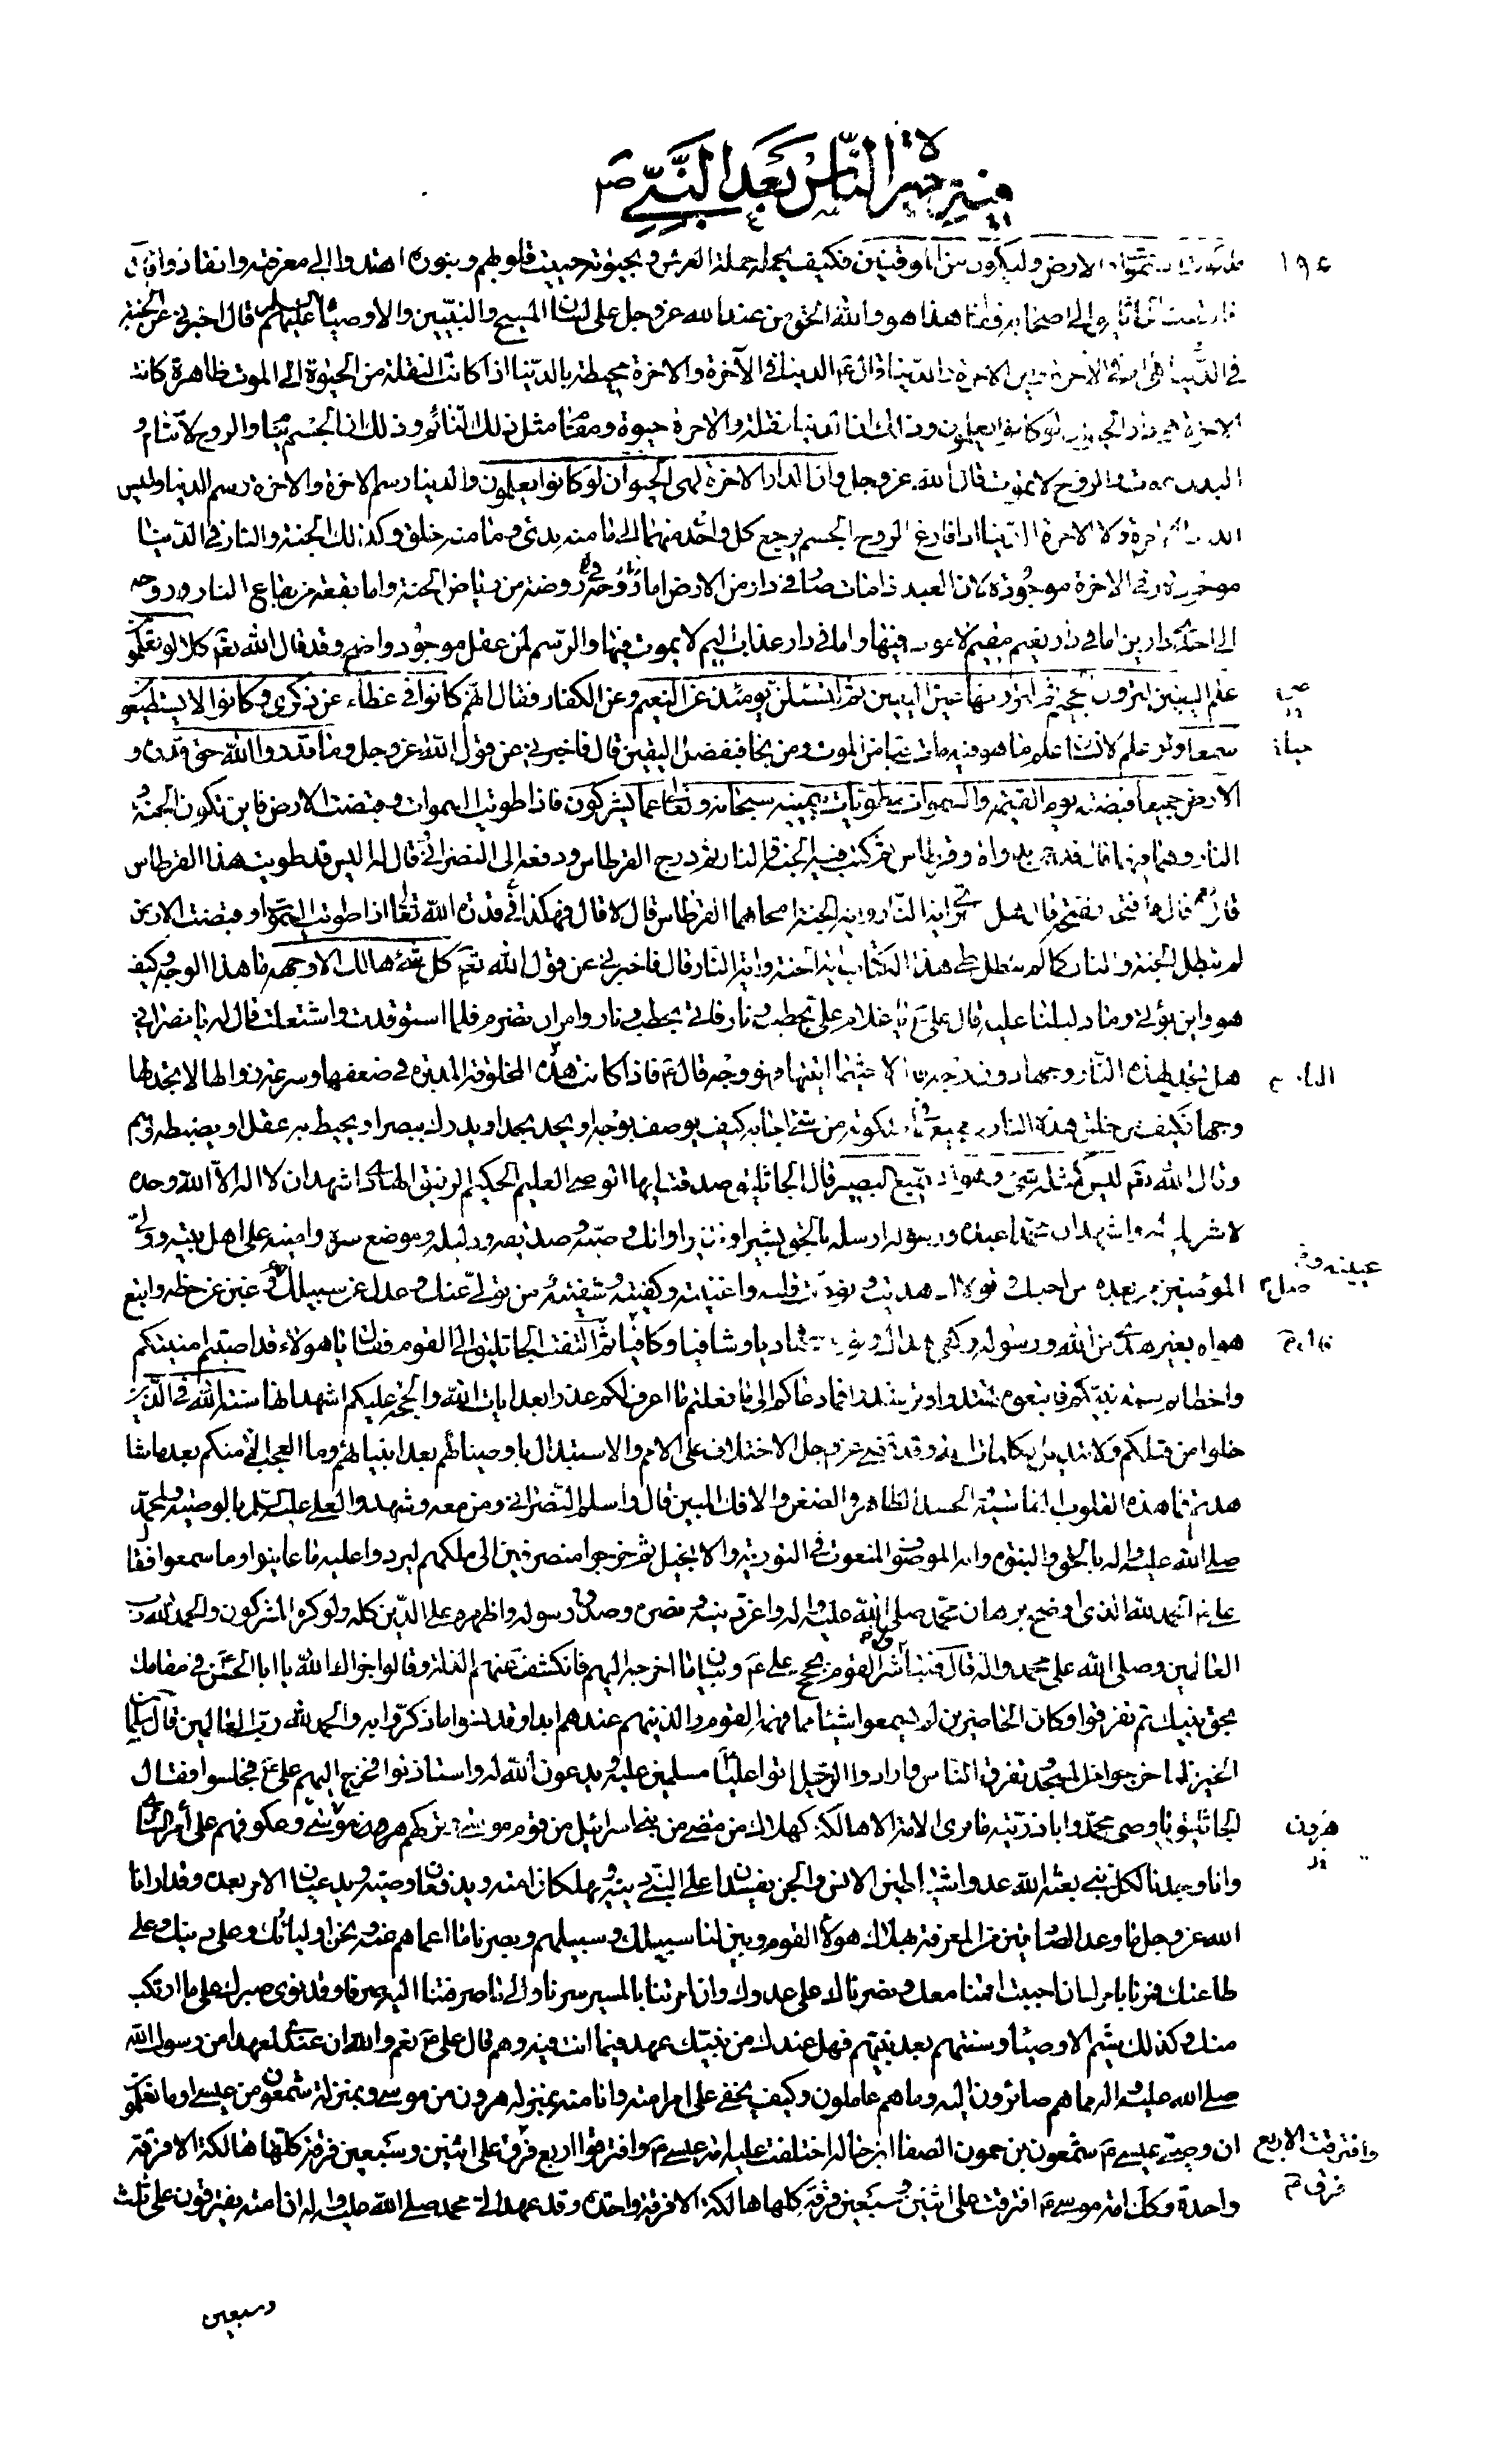 فيتيه الناس بعد النبي ص
١٩٤
السموات والارض وليكون من الموقنين فكيف يحمله حملة العرش وبحيوته حييت قلوبهم وبنوره اهتدوا الى معرفته وانقادوا
فالتفت الى اصحابه فقال هذا هو والله الحق من عند الله عز وجل على لسان المسيح والنبيين والاوصياء عليهم السلم قال اخبرني عن الجنة
في الدنيا هي ام في الاخرة واين الاخرة والدنيا قال ع الدنيا في الآخرة والاخرة محيطة بالدنيا اذا كانت النقلة من الحيوة الى الموت ظاهرة كانت
الاخرة هي دار الحيوان لو كانوا يعلمون وذلك ان الدنيا نقلة والاخرة حيوة ومقام مثل ذلك النائم وذلك ان الجسم ينام والروح لا تنام و
البدن يموت والروح لا تموت قال الله عز وجل وان الدار الاخرة لهى الحيوان لو كانوا يعلمون والدنيا رسم الاخرة والاخرة رسم الدنيا وليس
الدنيا الاخرة ولا الاخرة الدنيا اذا فارق الروح الجسم يرجع كل واحد منهما الى ما منه بدئ وما منه خلق وكذلك الجنة والنار في الدنيا
موجودة وفي الاخرة موجودة لان العبد اذا مات صار في دار من الارض اما روضة من رياض الجنة واما بقعة من بقاع النار وروحه
الى احد دارين اما في دار نعيم مقيم لا يموت فيها واما في دار عذاب اليم لا يموت فيها والرسم لمن عقل موجود واضح وقد قال الله تع كلا لو تعلمون
علم اليقين لترون الجحيم ثم لترونها عين اليقين ثم لتسئلن يومئذ عن النعيم وعن الكفار فقال انهم كانوا في غطاء عن ذكرى وكانوا لا يستطيعون
سمعا ولو علم الانسان علم ما هو فيه مات حياة من الموت ومن نجا فبفضل اليقين قال فاخبرني عن قول الله عز وجل وما قدروا الله حق قدره و
حياة
الارض جميعا قبضته يوم القيمة والسموات مطويات بيمينه سبحانه وتعالى عما يشركون فاذا طويت السموات وقبضت الارض فاين تكون الجنة و
النار وهما فيهما قال فدعى بدواة وقرطاس ثم كتب فيه الجنة والنار ثم درج القرطاس ودفعه الى النصراني قال له اليس قد طويت هذا القرطاس
قال نعم قال فافتحه ففتحه قال هل ترى اية النار واية الجنة امحاهما القرطاس قال لا قال فهكذا في قدرة الله تعالى اذا طويت السموات وقبضت الارض
لم تبطل الجنة والنار كما لم تبطل طي هذا الكتاب اية الجنة واية النار قال فاخبرني عن قول الله تع كل شئ هالك الا وجهه ما هذا الوجه وكيف
هو واين يؤتى وما دليلنا عليه قال على ع يا غلام على بحطب ونار فاتى بحطب ونار وامر ان تضرم فلما استوقدت واشتعلت قال له يا نصراني
هل تجد لهذه النار وجها دون وجه قال لا حيثما اتيتها فهو وجه قال ع فاذا كانت هذه المخلوقة المدبرة في ضعفها وسرعة زوالها لا تجد لها
وجها فكيف من خلق هذه النار وجميع ما في ملكوته من شئ اجابه كيف يوصف بوجه او يحد بحد او يدرك ببصر او يحيط به عقل او يضبطه وهم
وقال الله تع ليس كمثله شئ وهو السميع البصير قال الجاثليق صدقت ايها الوصي العليم الحكيم الرفيق الهادي اشهد ان لا اله الا الله وحده
لا شريك له واشهد ان محمدا عبده ورسوله ارسله بالحق بشيرا ونذيرا وانك وصيه وصديقه ودليله وموضع سره وامينه على اهل بيته وولي
المؤمنين من بعده من احبك وتولاك هديته ونورت قلبه واغنيته وكفيته وشفيته ومن تولى عنك وعدل عن سبيلك غبن عن حظه واتبع
هواه بغير هدى من الله ورسوله وكفى هداك ونورك هاديا وشافيا وكافيا ثم التفت الجاثليق الى القوم فقال يا هؤلاء قد اصبتم امنيتكم
واخطاتم سنة نبيكم فاتبعوه تهتدوا وترشدوا فما دعاكم الى ما فعلتم ما اعرف لكم عذرا بعد ايات الله والحجة عليكم اشهد انها سنة الله في الذين
خلوا من قبلكم ولا تبديل لكلمات الله وقد قضى عز وجل الاختلاف على الامم والاستبدال باوصيائهم بعد انبيائهم وما العجب الا منكم بعد ما شا
هدتم فما هذه القلوب القاسية الحسد الظاهر والضغن والافك المبين قال واسلم النصراني ومن معه وشهدوا لعلى عليه السلم بالوصية ولمحمد
صلى الله عليه واله بالحق والنبوة وانه الموصوف المنعوت في التورية والانجيل ثم خرجوا منصرفين الى ملكهم ليردوا عليه ما عاينوا وما سمعوا فقال
على ع الحمد لله الذي اوضح برهان محمد صلى الله عليه واله واعز دينه ونصره وصدق رسوله واظهره على الدين كله ولو كره المشركون والحمد لله رب
العالمين وصلى الله على محمد واله قال فتباشر القوم بحجج على ع وبيان ما اخرجه اليهم فانكشفت عنهم الذلة وقالوا جزاك الله يا ابا الحسن في مقامك
بحق نبيك ثم تفرقوا وكان الحاضرين لم يسمعوا شيئا مما فهم القوم والذينهم عندهم ابدا وقد نسوا ما ذكروا به والحمد لله رب العالمين قال سلمان
الخير فلما خرجوا من المسجد وتفرق الناس وارادوا الرحيل اتوا عليا مسلمين عليه ويدعون الله له واستاذنوا فخرج اليهم على ع فجلسوا فقال
الجاثليق يا وصى محمد وابا ذريته ما نرى الامة الا هالكة كهلاك من مضى من بنى اسرائيل من قوم موسى وتركهم هرون وعكوفهم على امر السامري
هرون
وانا وجدنا لكل نبى بعثه الله عدوا شياطين الانس والجن يفسدان على النبي دينه ويهلكان امته ويدفعان وصيه ويدعيان الامر بعده وقد ارانا
الله عز وجل ما وعد الصادقين من المعرفة بهلاك هؤلاء القوم وبين لنا سبيلك وسبيلهم وبصرنا ما اعماهم عنه ونحن اولياؤك وعلى دينك وعلى
طاعتك فمرنا بامرك ان احببت اقمنا معك ونصرناك على عدوك وان امرتنا بالمسير سرنا والى ما صرفتنا اليه صرنا وقد نرى صبرك على ما ارتكب
منك وكذلك شيم الاوصياء وسنتهم بعد نبيهم فهل عندك من نبيك عهد فيما انت فيه وهم قال على ع نعم والله ان عندى لعهدا من رسول الله
صلى الله عليه واله مما هم صائرون اليه وما هم عاملون وكيف يخفى على امر امته وانا منه بمنزلة هرون من موسى وبمنزلة شمعون من عيسى او ما تعلمون
ان وصى عيسى ع شمعون بن حمون الصفا ابن خاله اختلفت عليه امة عيسى ع وافترقوا اربع فرق على اثنين وسبعين فرقة كلها هالكة الا فرقة
وافترقت الاربع
فرق م
واحدة وكذلك امة موسى ع افترقت على اثنين وسبعين فرقة كلها هالكة الا فرقة واحدة وقد عهد الى محمد صلى الله عليه واله ان امته يفترقون على ثلث
وسبعين